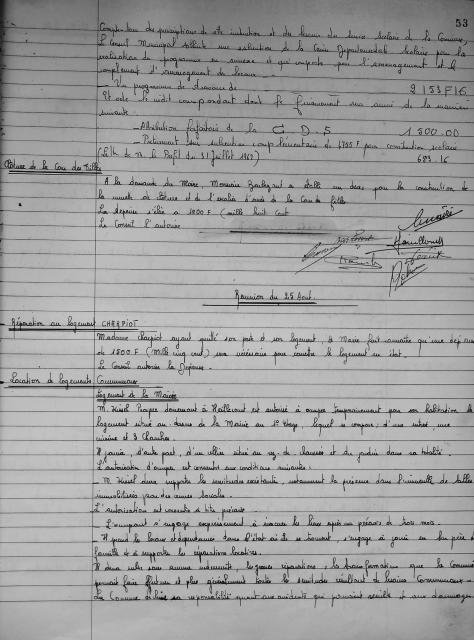 53
Compte tenu des prescriptions de cette instruction et des besoins du service scolaire de la Commune,
Le Conseil Municipal sollicite une subvention de la Caisse Départementale Scolaire pour la
réalisation du programme en annexe et qui comporte pour l'aménagement et le
complément d'aménagement de locaux
- Un programme de travaux de 2 153 F 16
Et vote le crédit correspondant dont le financement sera assuré de la manière
suivante
- Attribution forfaitaire de la C D S 1 500.00
- Prélèvement sur subvention complémentaire de pour construction scolaire 653.16
(Lettre de M. le Préfet du 31 Juillet 1967)
Clôture de la Cour des Filles
A la demande du Maire, Monsieur a établi un devis pour la construction de
la murette de clôture et de l'escalier d'accès de la Cour des filles
La dépense s'élève à 1800 F (mille huit cent
Le Conseil l'autorise
Réunion du 25 Août.
Réparation au logement CHARPIOT
Madame Charpiot ayant quitté son poste et son logement, le Maire fait connaître qu'une dépense
de 1500 F (Mille cinq cent) sera nécessaire pour remettre le logement en état.
Le Conseil autorise la Dépense.
Location de logements Communaux
Logement de la Mairie
M. demeurant à est autorisé à occuper temporairement pour son habitation le
logement situé au-dessus de la Mairie au 1er étage, lequel se compose : d'une entrée, une
cuisine et 3 Chambres.
Il jouira, d'autre part, d'un cellier situé au rez-de-chaussée et du jardin dans sa totalité.
L'autorisation d'occuper est consentie aux conditions suivantes :
- M. devra supporter les servitudes existantes, notamment la présence dans l'immeuble de salles
immobilisées pour des œuvres sociales.
L'autorisation est consentie à titre précaire.
- L'occupant s'engage expressément à évacuer les lieux après un préavis de trois mois.
- Il prend les locaux et dépendances dans l'état où ils se trouvent, s'engage à jouir en bon père de
famille et à supporter les réparations locatives.
Il devra subir sans aucune indemnité, les grosses réparations, les transformations que la Commune
pourrait faire effectuer et plus généralement toutes les servitudes résultant de besoins Communaux.
La Commune décline sa responsabilité quant aux accidents qui pourraient survenir et aux dommages